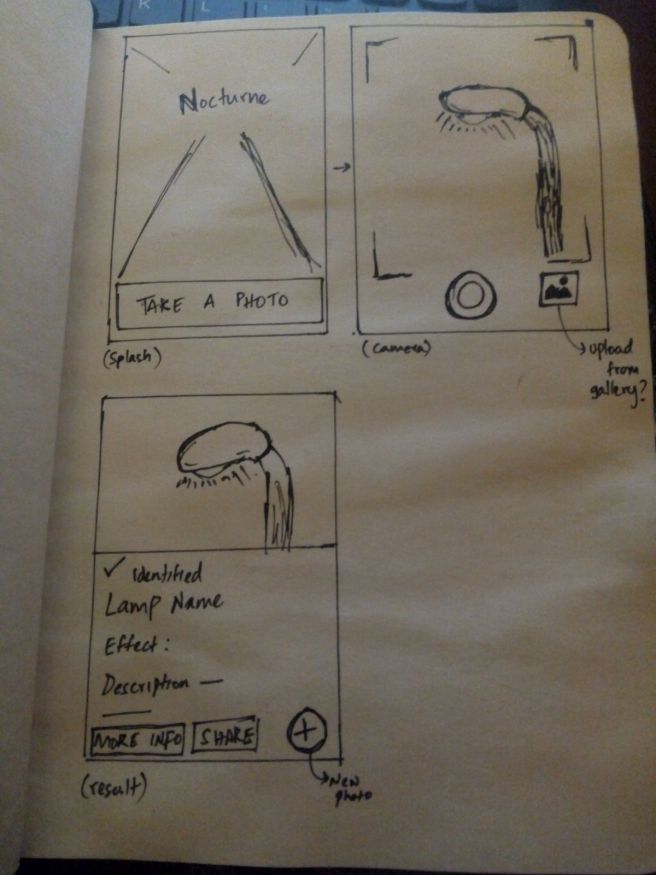 K L
Nocturne
TAKE A PHOTO
(Splash)
(camera)
upload
from
gallery?
✓ Identified
Lamp Name
Effect :
Description —
MORE INFO
SHARE
+
(result)
New
photo